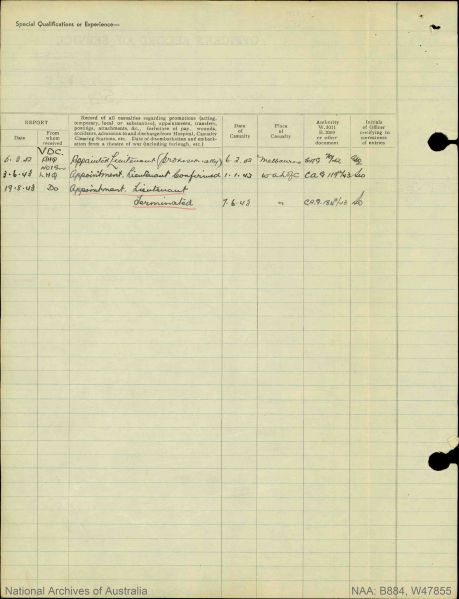 Special Qualifications or Experience—
REPORT
Date
From whom received
Record of all casualties regarding promotions (acting,
temporary, local or substantive), appointments, transfers,
postings, attachments, &c., forfeiture of pay, wounds,
accidents, admission to and discharge from Hospital, Casualty
Clearing Stations, etc. Date of disembarkation and embark-
ation from a theatre of war (including furlough, etc.)
Date of Casualty
Place of Casualty
Authority W.3011 B.2069 or other document
Initials of Officer certifying to correctness of entries
V.D.C.
Appointed Lieutenant (provisionally) 6.3.42 Melbourne
3.6.43 LHQ Appointment Lieutenant Confirmed 1.1.43
19.8.43 Do Appointment Lieutenant
Terminated 7.6.43 "
National Archives of Australia
NAA: B884, W47855